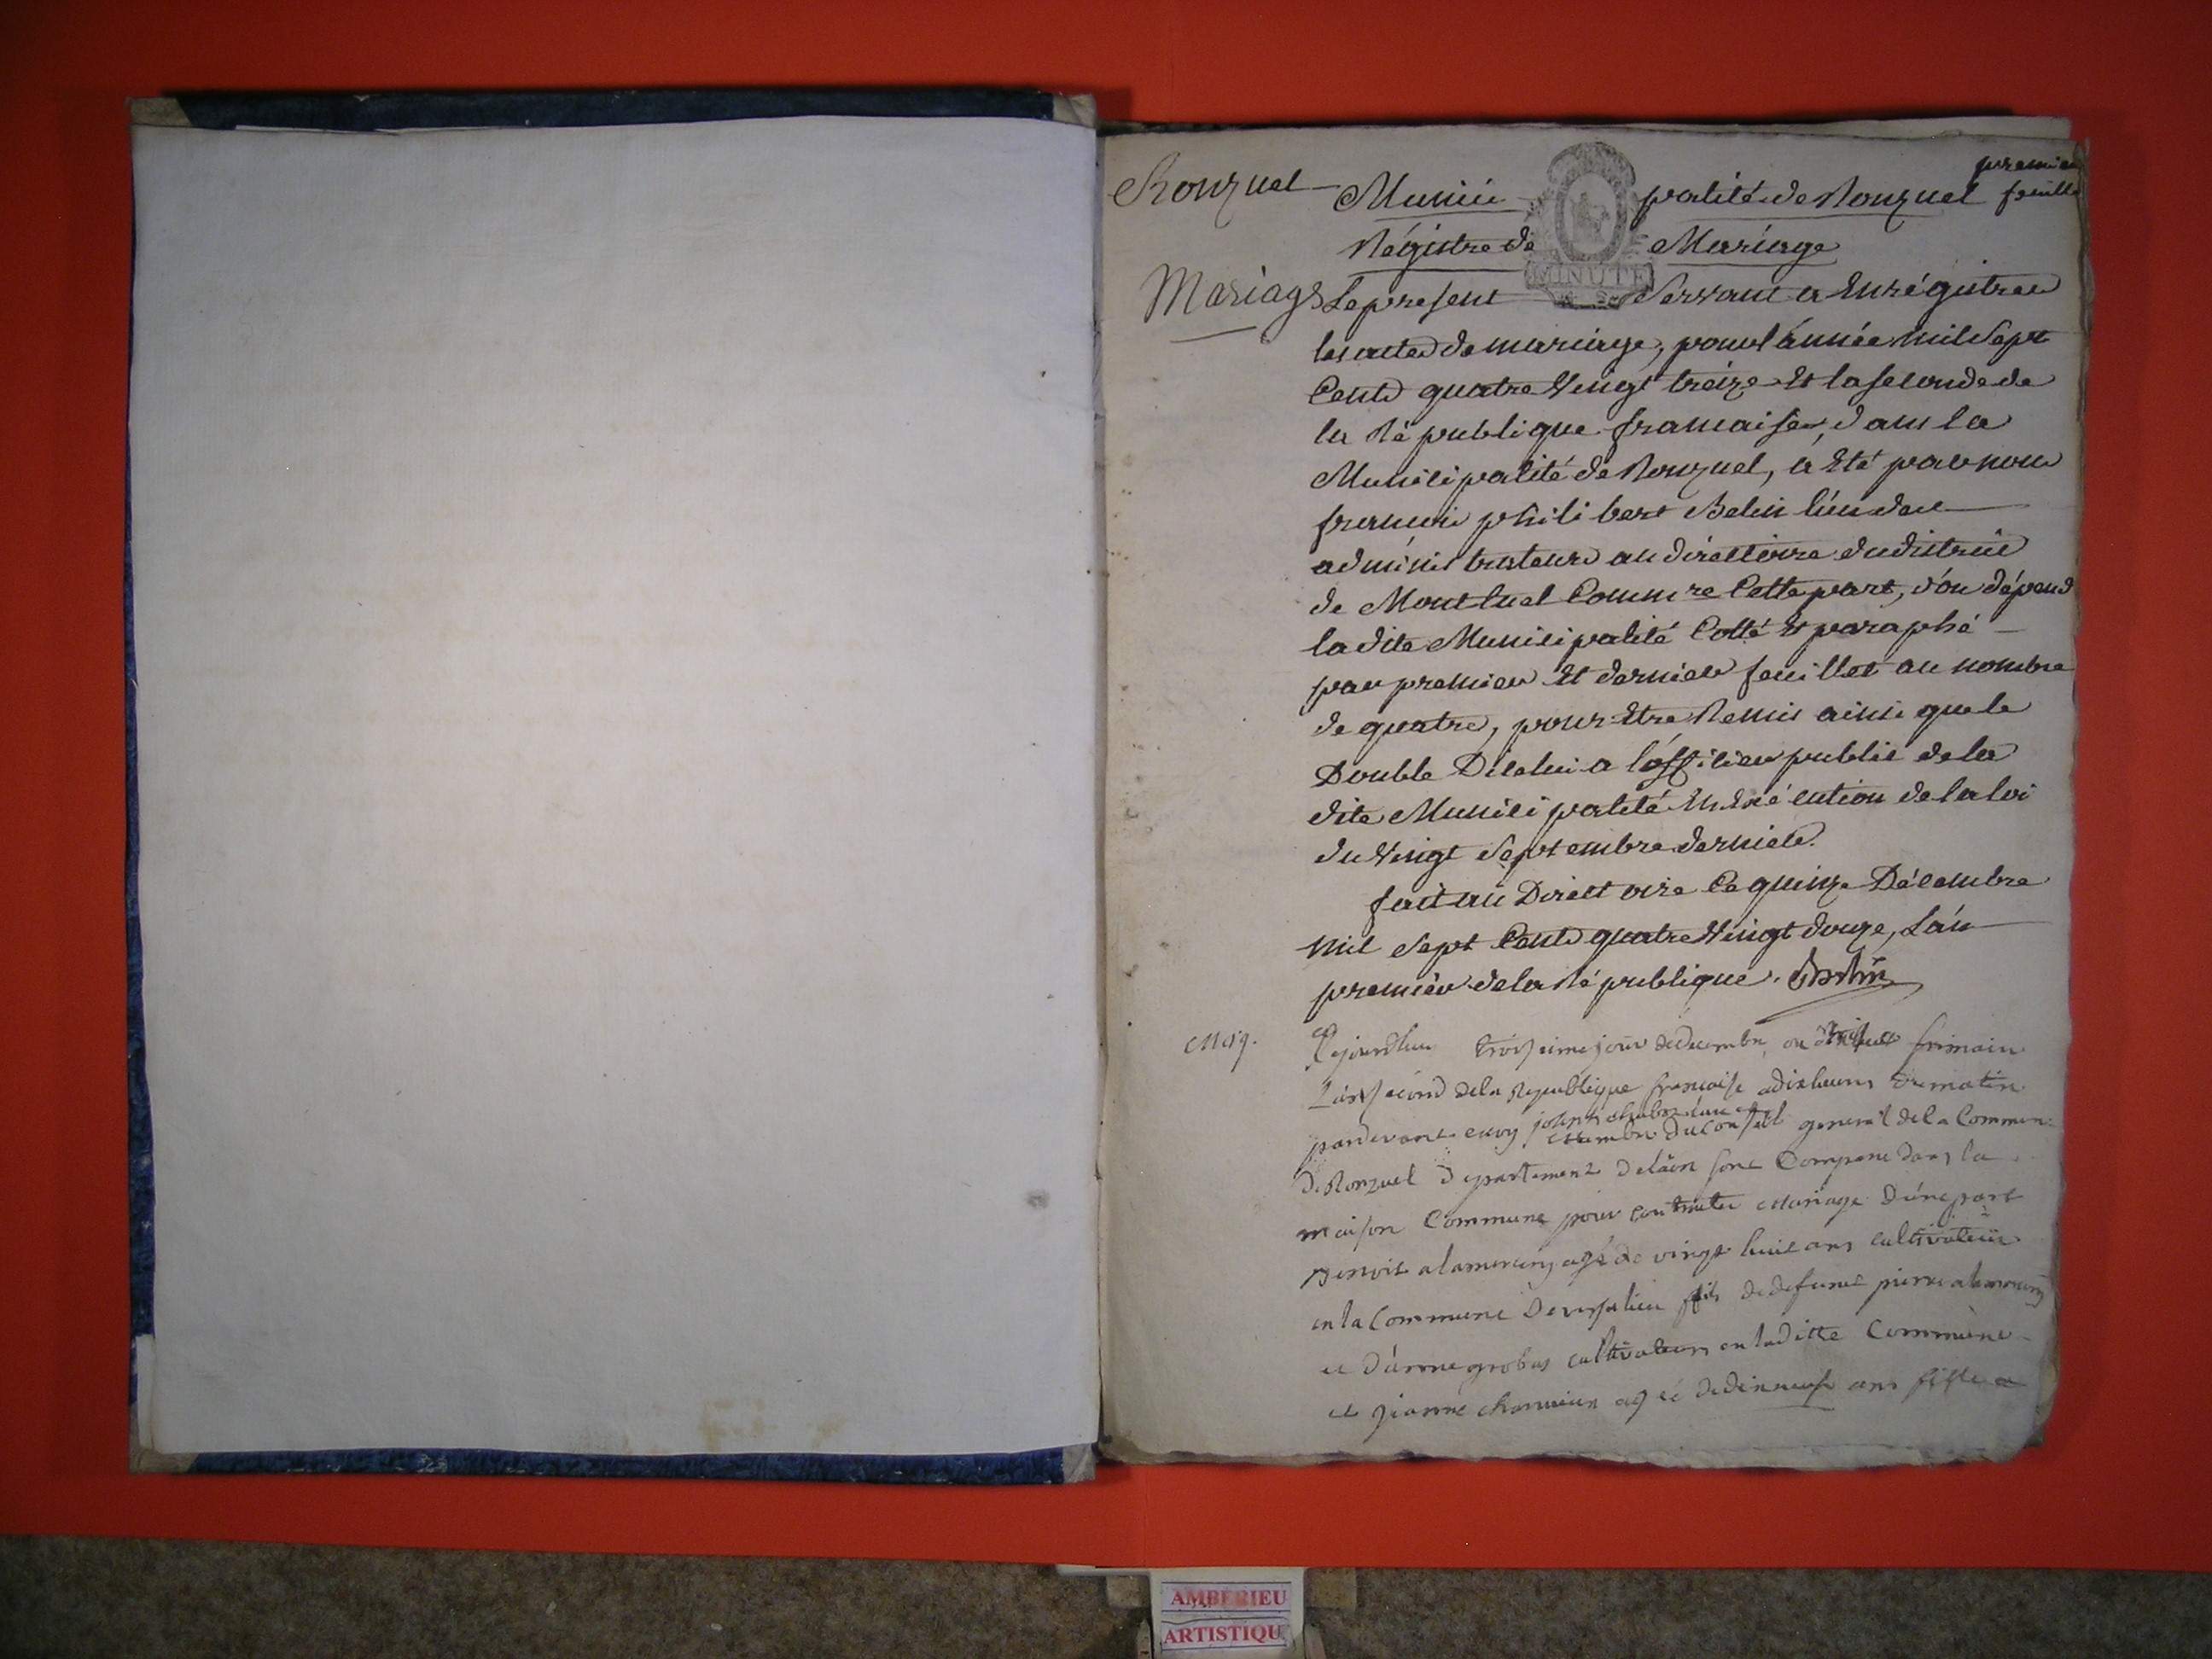 Ronzuel
premier
Munici palité de Ronzuel feuillet
Régistre de Mariage
MINUTE
Mariages Le present Servant a Enrégistrer
les actes de mariage, pour l'année mil Sept
Cents quatre Vingt treize Et la seconde de
la République francaise, dans la
Municipalité de Ronzuel, a Eté par nous
francois philibert Belin l'un des
administrateurs au directoire du district
de Montluel Commre Cette part, d'ou dépend
la dite Municipalité Cotté & paraphé
par premier Et dernier feuillet au nombre
de quatre, pour Etre Remis ainsi que le
Double Dicelui a l'officier public de la
dite Municipalité En Exécution de la loi
du Vingt Septembre dernier.
fait au Directoire Ce quinze Décembre
mil Sept Cents quatre Vingt douze, L'an
premier de la République. Belin
Marg. Cejourdhui troiseime jour de decembre ou frimaire
L'an second de la Republique francaise a dix heures du matin
pardevant moy joseph
membre du conseil general de la Commune
de Ronzuel departement de lain sont Comparu dans la
maison Commune pour contracter mariage d'une part
Benoit alamercery agé de vingt huit ans cultivateur
en la Commune de versalieu fils de defunt pierre alamercery
et d'anne grobas cultivateurs en la ditte Commune
et jeanne agéé de dixneuf ans fille
AMBERIEU
ARTISTIQU